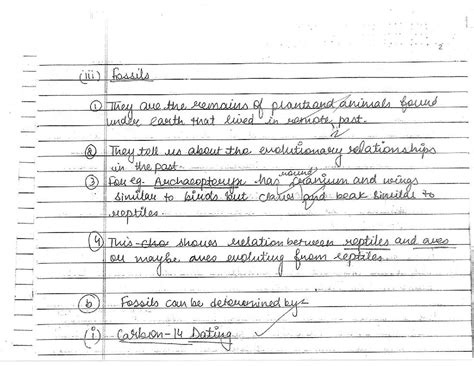 2
(iii) Fossils
① They are the remains of plants and animals found
under earth that lived in remote past.
② They tell us about the evolutionary relationships
in the past.
③ For eg. Archaeopteryx has round cranium and wings
similar to birds but claws and beak similar to
reptiles.
④ This shows relation between reptiles and aves
or maybe aves evoluting from reptiles.
ⓑ Fossils can be determined by:-
(i) Carbon-14 Dating